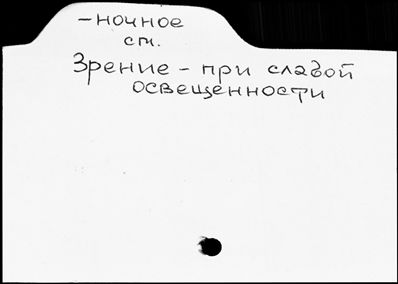 -ночное
ст.
Зрение - при слабой
освещенности